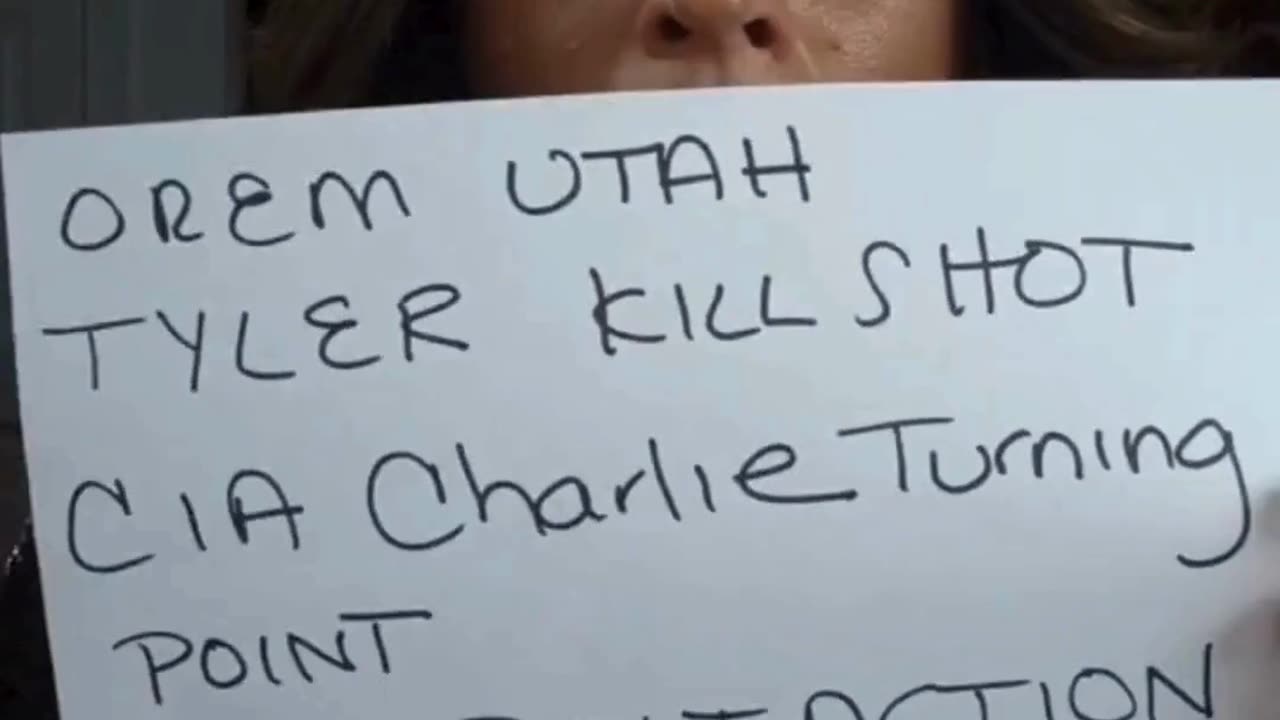 OREM UTAH
TYLER KILL SHOT
CIA Charlie Turning
POINT